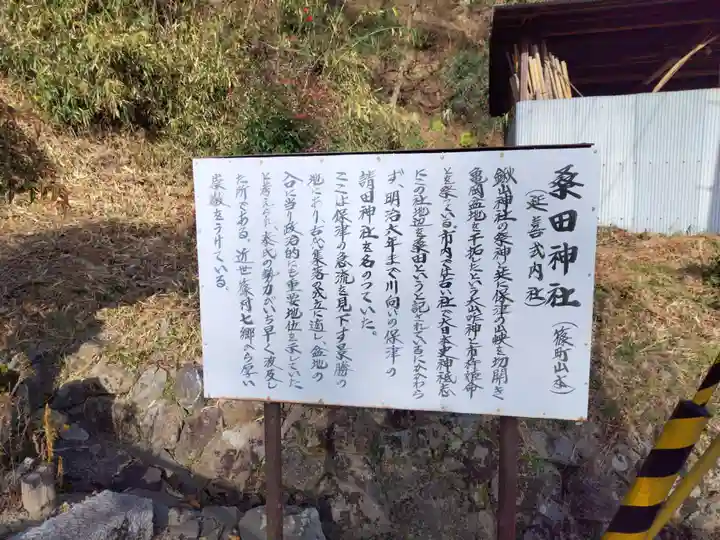 桑田神社(篠町山本)
(延喜式内社)
鍬山神社の祭神と共に保津の山峡を切開き
亀岡盆地を干拓したという大山咋神と市杵姫命
を祭っている。市内で最古い社で大日本史神祇志
にこの社地辺を桑田というと記されているにかかわら
ず、明治六年まで川向いの保津の
請田神社を名のっていた。
ここは保津の急流を見下す景勝の
地にあり古代集落の成立に適し、盆地の
入口に当り政治的にも重要な地位を示していた
と考えられ、秦氏の勢力がいち早く波及し
た所である。近世篠村七郷から厚い
崇敬をうけている。